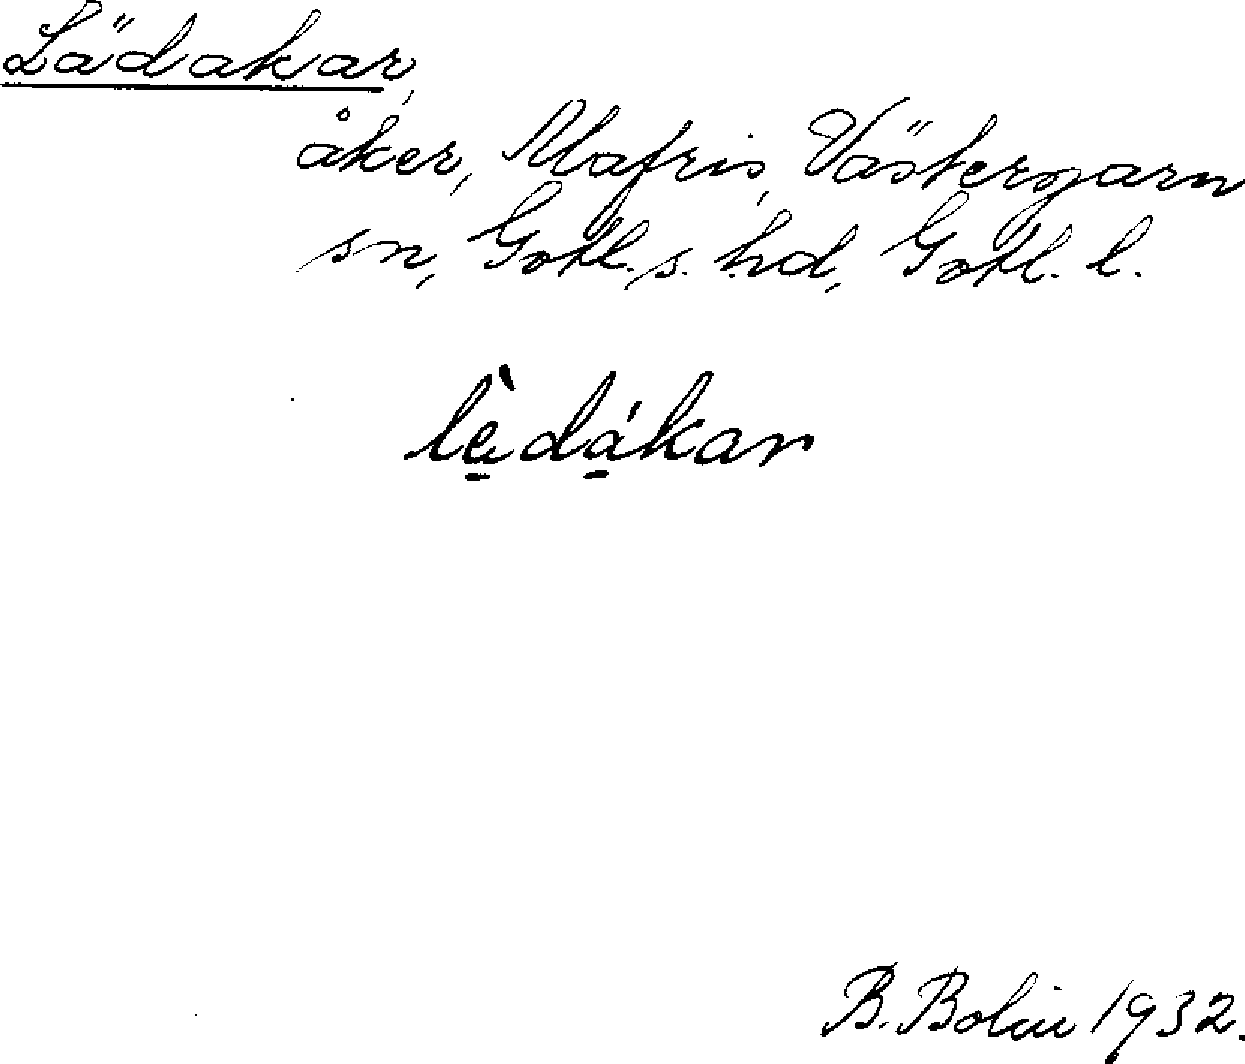 Lädakar,
åker, Mafris, Västergarn
sn, Gotl. s. hd, Gotl. l.
lèdákar
B. Bolin 1932.